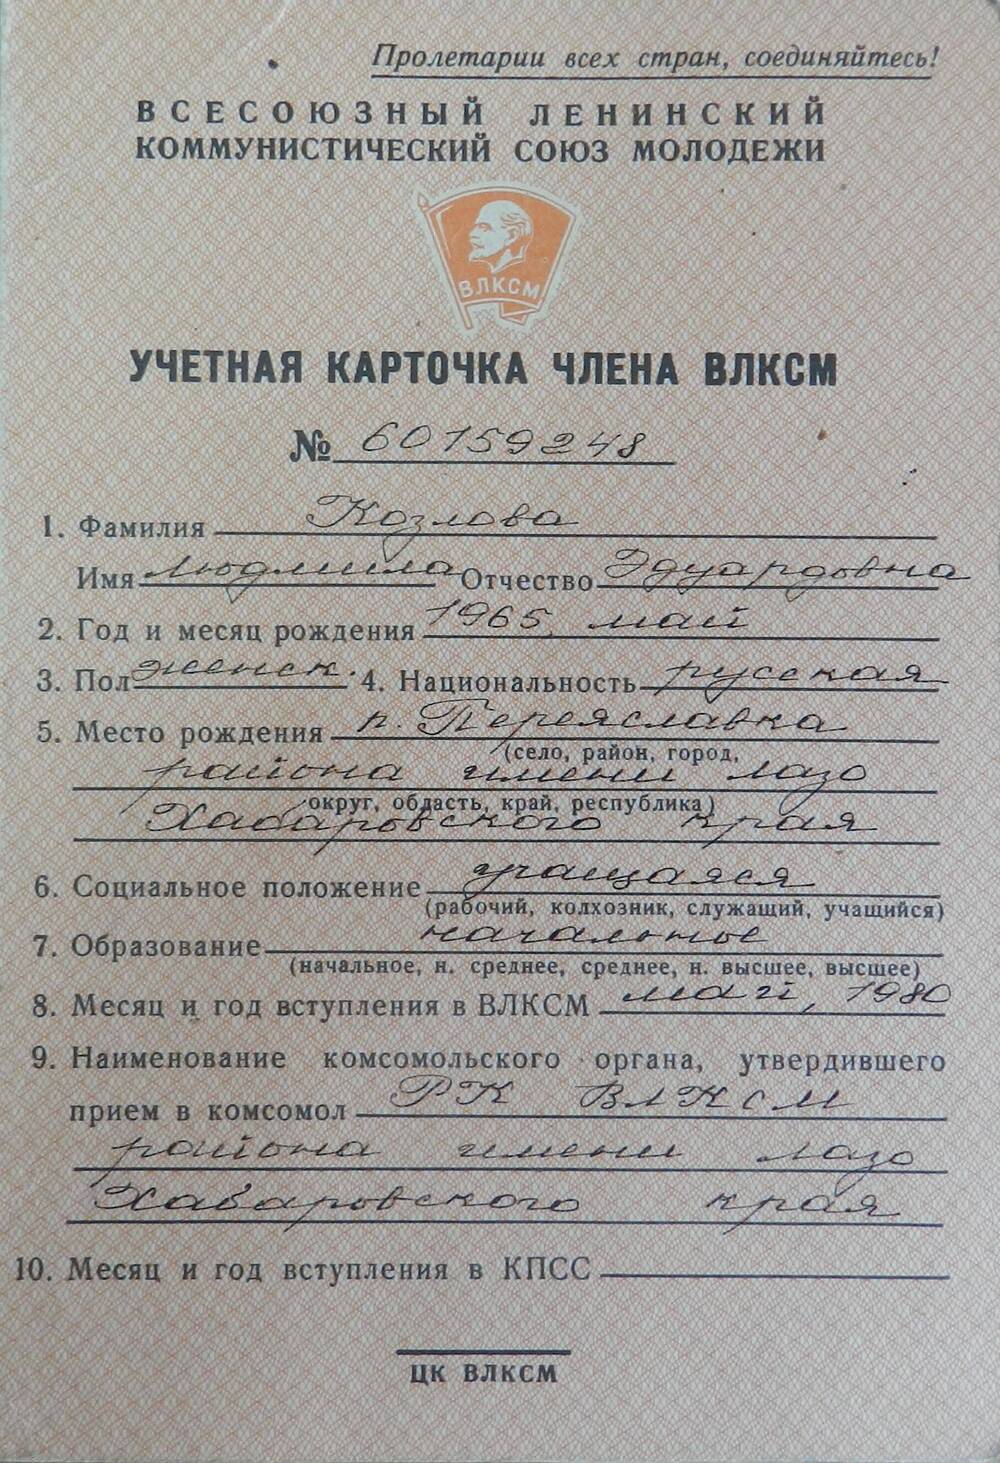 Пролетарии всех стран, соединяйтесь!
ВСЕСОЮЗНЫЙ ЛЕНИНСКИЙ
КОММУНИСТИЧЕСКИЙ СОЮЗ МОЛОДЕЖИ
ВЛКСМ
УЧЕТНАЯ КАРТОЧКА ЧЛЕНА ВЛКСМ
№ 60159248
1. Фамилия Козлова
Имя Людмила Отчество Эдуардовна
2. Год и месяц рождения 1965, май
3. Пол женск. 4. Национальность русская
5. Место рождения п. Переяславка
(село, район, город,
района имени Лазо
округ, область, край, республика)
Хабаровского края
6. Социальное положение учащаяся
(рабочий, колхозник, служащий, учащийся)
7. Образование начальное
(начальное, н. среднее, среднее, н. высшее, высшее)
8. Месяц и год вступления в ВЛКСМ май, 1980
9. Наименование комсомольского органа, утвердившего
прием в комсомол РК ВЛКСМ
района имени Лазо
Хабаровского края
10. Месяц и год вступления в КПСС
ЦК ВЛКСМ